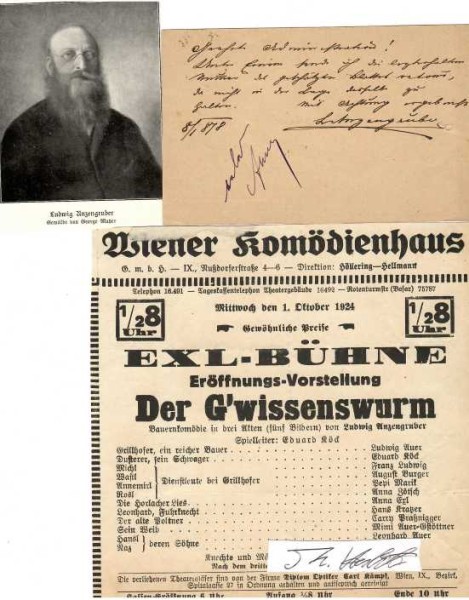 Ludwig Anzengruber
Gemälde von George Mayer
Geehrte Administration!
Unter Einem sende ich die
des geschätzten Blattes retour,
da nicht in der Lage dasselbe zu
halten. Mit Achtung ergebenst
5/1 878 L Anzengruber
Wiener Komödienhaus
G. m. b. H. — IX., Nußdorferstraße 4—6 — Direktion: Höllering-Hellmann
Telephon 16.491 — Tageskassentelephon Theatergebäude 16492 — Rotenturmstr. (Basar) 75787
1/2 8 Uhr
Mittwoch den 1. Oktober 1924
1/2 8 Uhr
Gewöhnliche Preise
EXL-BÜHNE
Eröffnungs-Vorstellung
Der G'wissenswurm
Bauernkomödie in drei Akten (fünf Bildern) von Ludwig Anzengruber
Spielleiter: Eduard Köck
Grillhofer, ein reicher Bauer Ludwig Auer
Dusterer, sein Schwager Eduard Köck
Michl Franz Ludwig
Wastl August Burger
Annemirl Dienstleute bei Grillhofer Pepi Marik
Rosl Anna Zötsch
Die Horlacher Lies Anna Exl
Leonhard, Fuhrknecht Hans Kratzer
Der alte Poltner
Sein Weib Mimi Auer-Gstöttner
Hansl Leonhard Auer
Naz deren Söhne
Knechte und
Nach dem dritten
Die verliehenen Theatergläser sind von der Firma Diplom Optiker Carl Kämpf, Wien, IX., Bezirk,
Spitalgasse 27 in Ordnung erhalten und antiseptisch gereinigt
Kassen-Eröffnung 6 Uhr Anfang 1/2 8 Uhr Ende 10 Uhr